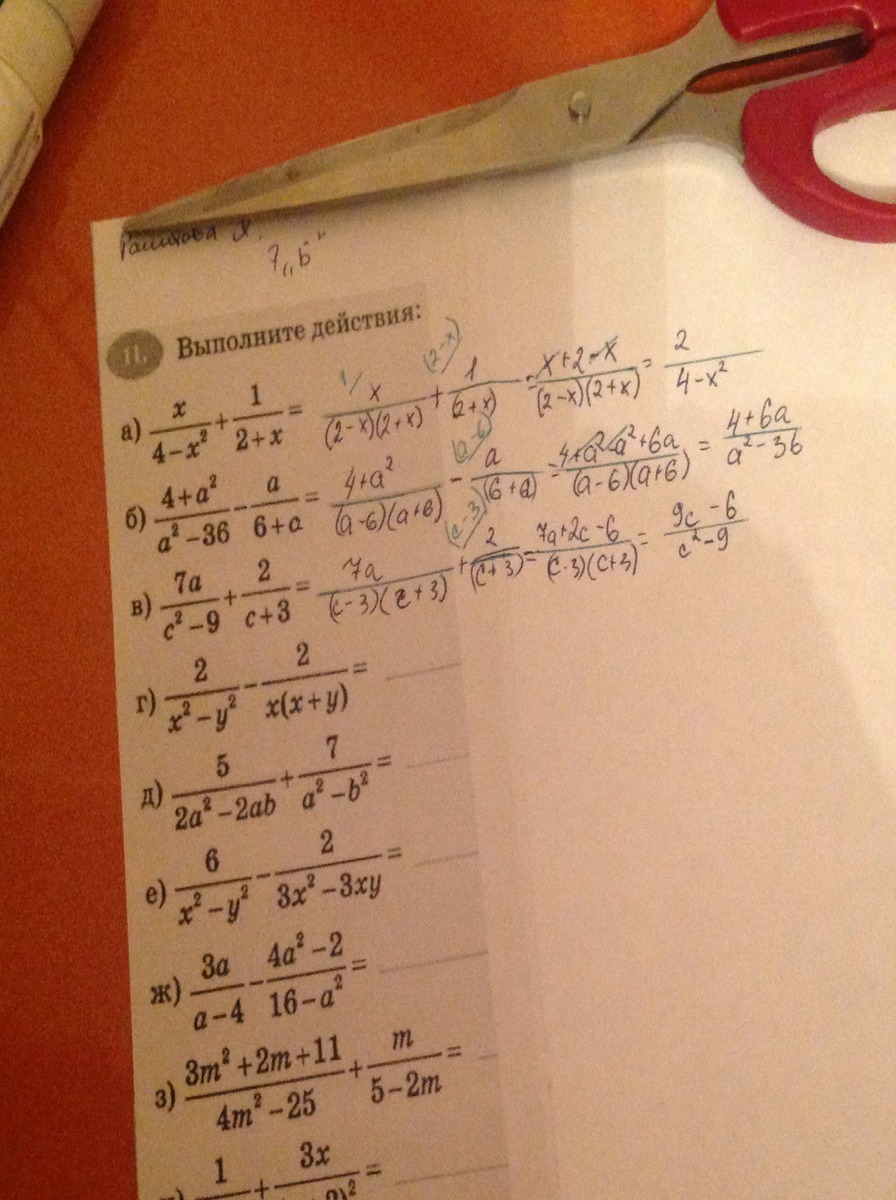 7 „Б"
II. Выполните действия:
а) x/(4−x²) + 1/(2+x) = x/((2−x)(2+x)) + 1/(2+x) = (x+2−x)/((2−x)(2+x)) = 2/(4−x²)
1/ (2−x)/
б) (4+a²)/(a²−36) − a/(6+a) = (4+a²)/((a−6)(a+6)) − a/(6+a) = (4+a²−a²+6a)/((a−6)(a+6)) = (4+6a)/(a²−36)
(a−6)/
в) 7a/(c²−9) + 2/(c+3) = 7a/((c−3)(c+3)) + 2/(c+3) = (7a+2c−6)/((c−3)(c+3)) = (9c−6)/(c²−9)
(c−3)/
г) 2/(x²−y²) − 2/(x(x+y)) =
д) 5/(2a²−2ab) + 7/(a²−b²) =
е) 6/(x²−y²) − 2/(3x²−3xy) =
ж) 3a/(a−4) − (4a²−2)/(16−a²) =
з) (3m²+2m+11)/(4m²−25) + m/(5−2m) =
1 + 3x =